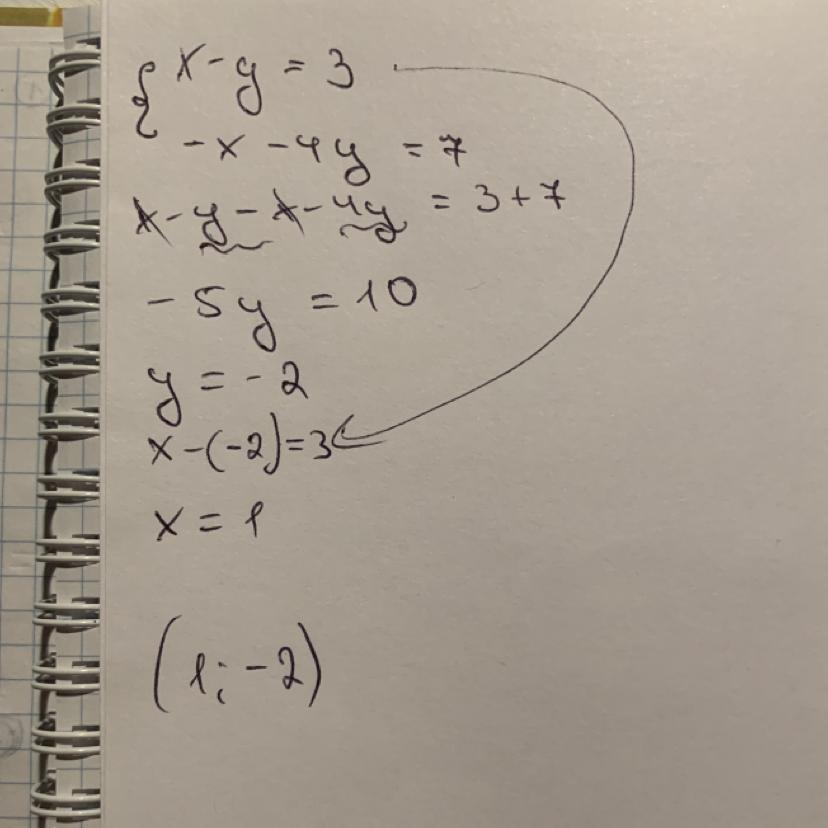 { x - y = 3
-x - 4y = 7
x - y - x - 4y = 3 + 7
-5y = 10
y = -2
x - (-2) = 3
x = 1
(1; -2)